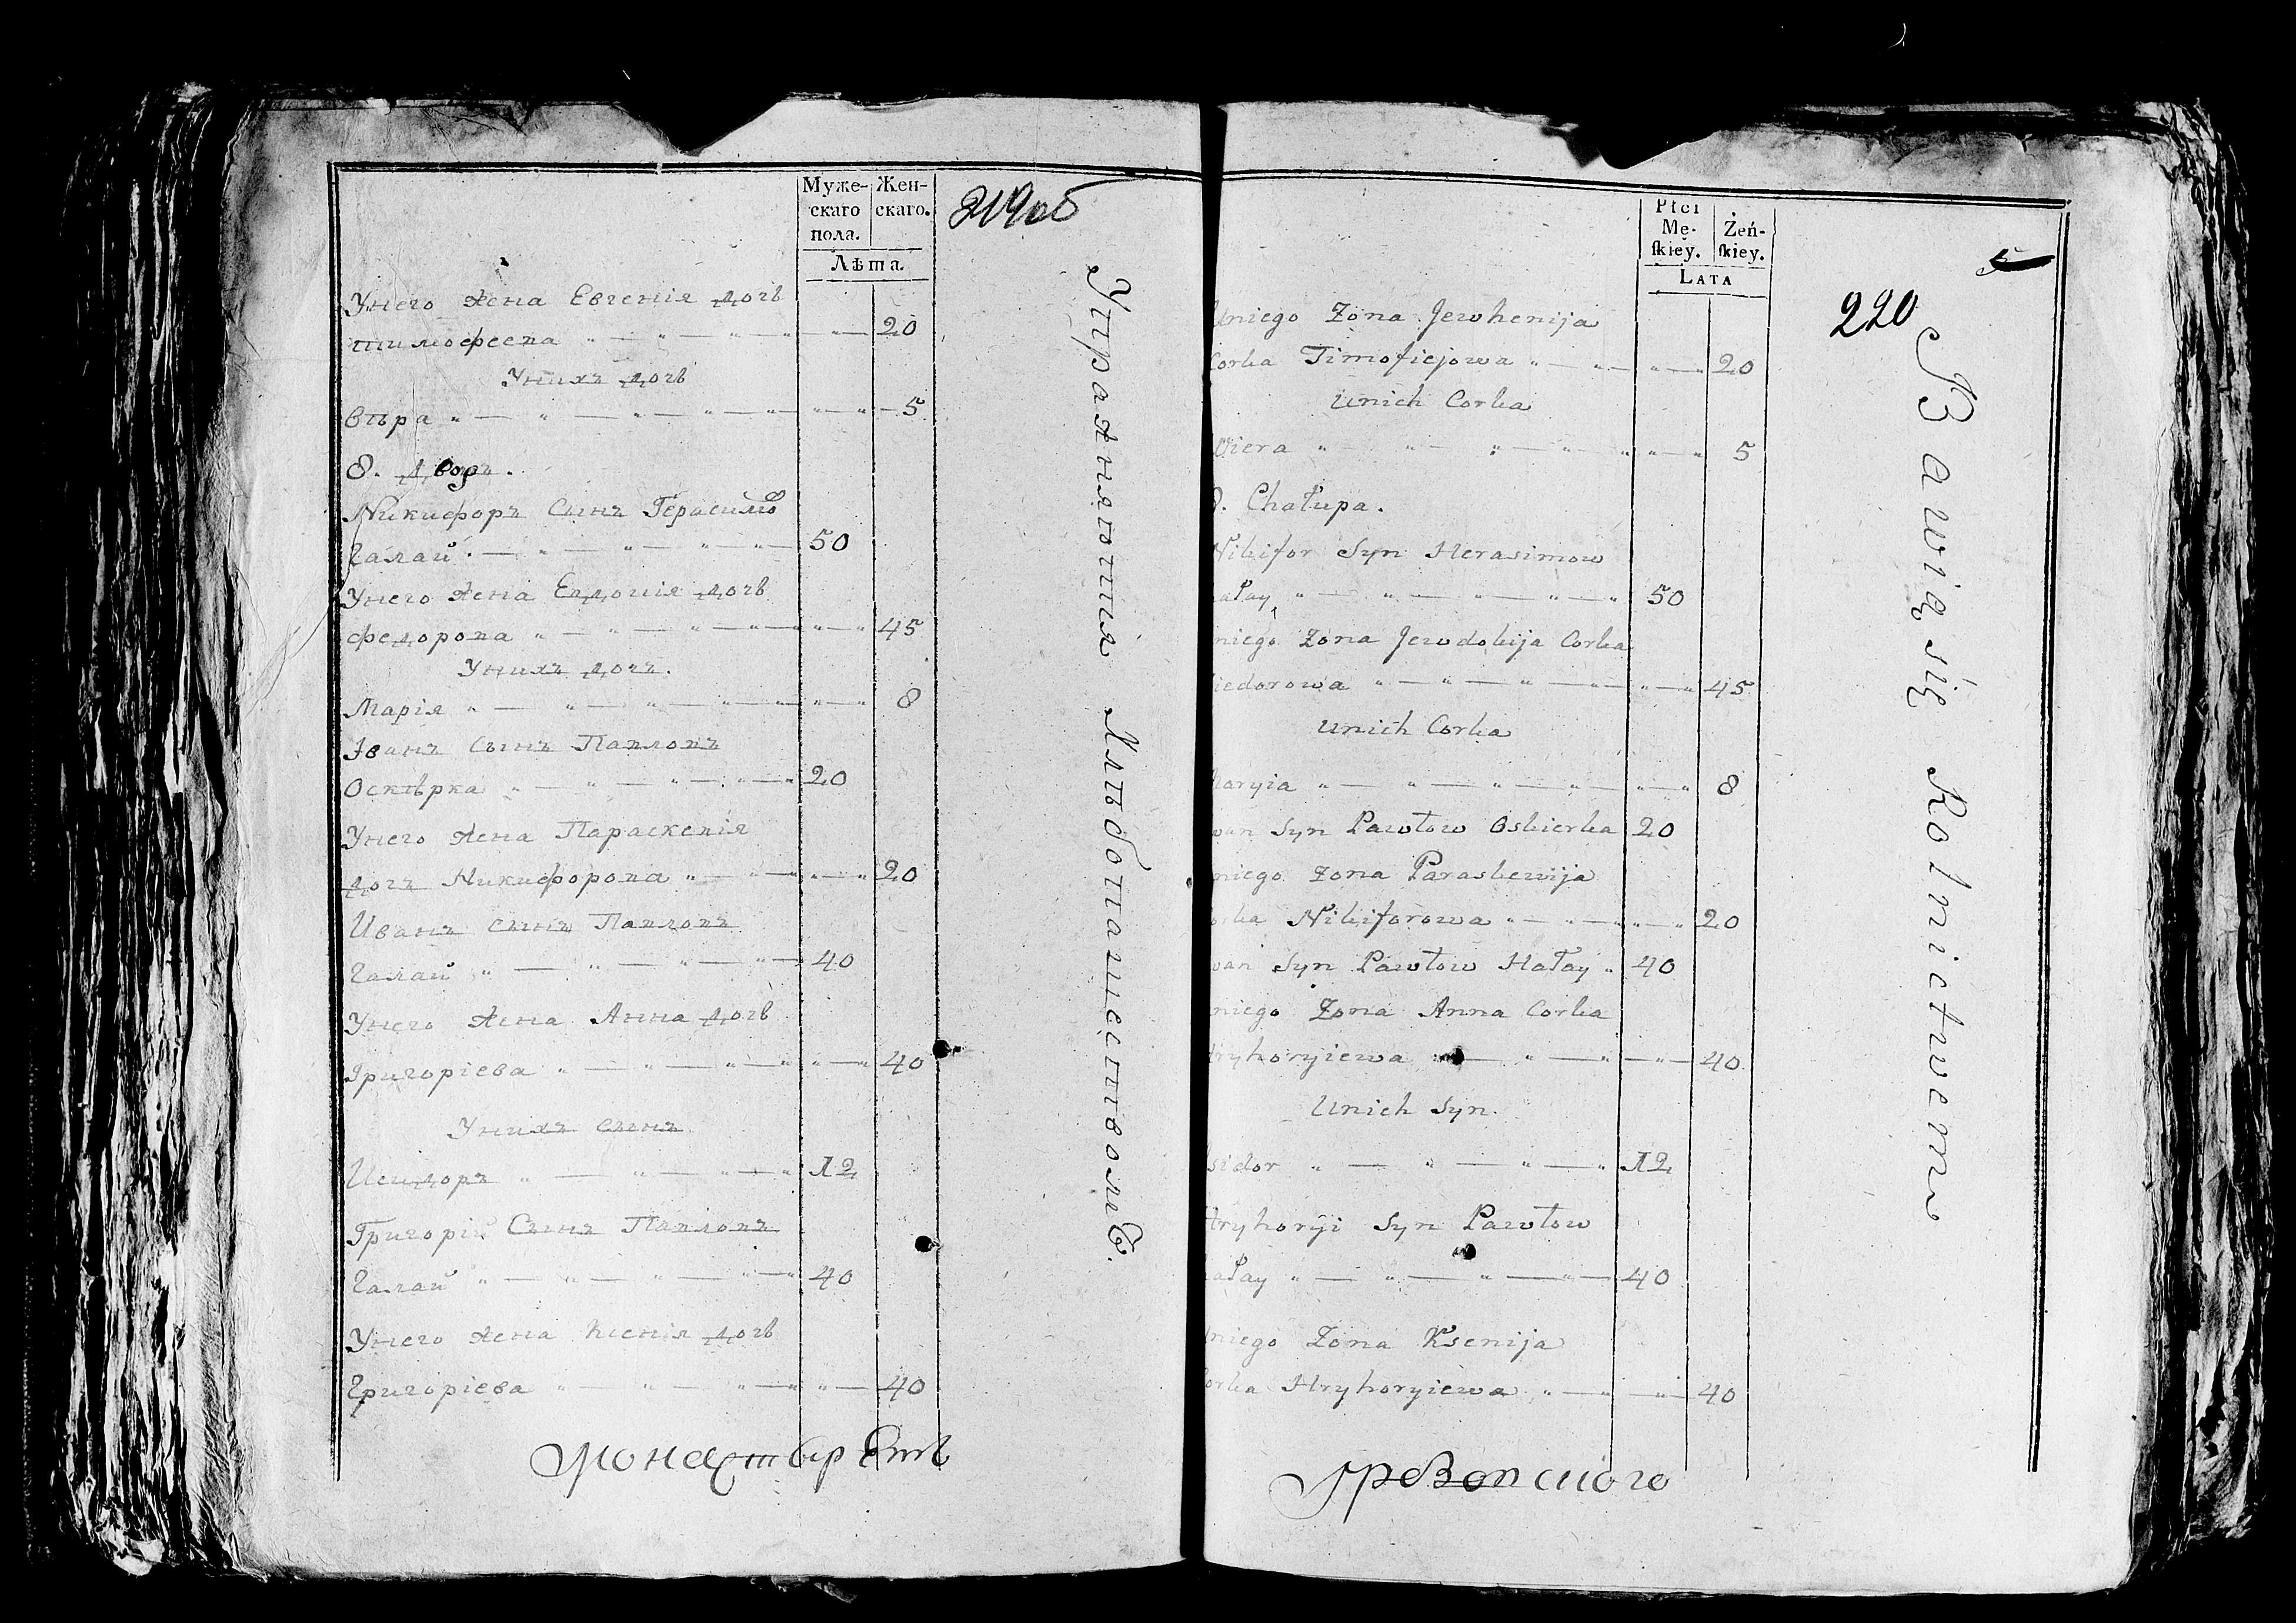 Муже-
скаго
пола.
Жен-
скаго.
Лѣта.
219об
Унего жена Евгенія дочь
тимофеева " — " — " — " — " — 20
Унихъ дочь
вѣра " — " — " — " — " — " — 5
8. дворъ.
Никифоръ Сынъ Герасимо
Галай " — " — " — " — 50
Унего жена Евдокія дочь
федорова " — " — " — " — " — 45
Унихъ дочь.
Марія " — " — " — " — " — 8
Іванъ сынъ Павловъ
Оскѣрка " — " — " — " — 20
Унего жена Параскевія
дочь Никифорова " — " — " — 20
Иванъ сынъ Павловъ
Галай " — " — " — " — 40
Унего жена Анна дочь
Григоріева " — " — " — " — 40
Унихъ сынъ
Исидоръ " — " — " — 12
Григорій Сынъ Павловъ
Галай " — " — " — " — 40
Унего жена Ксенія дочь
Григоріева " — " — " — " — 40
Упражняютця хлѣбопашествомъ.
Płci
Mę-
skiey.
Żeń-
skiey.
LATA
5
220
Uniego Zona Jewhenija
Corka Timofiejowa " — " — " — 20
Unich Corka
Wiera " — " — " — " — " — 5
8. Chałupa.
Nikifor Syn Herasimow
ałay " — " — " — " — 50
niego Zona Jewdokija Corka
iedorowa " — " — " — " — 45
Unich Corka
Maryia " — " — " — " — " — 8
wan Syn Pawłow Oskierka 20
niego Zona Paraskewija
orka Nikiforowa " — " — " — 20
wan Syn Pawłow Hałay " 40
niego Zona Anna Corka
Hryhoryiewa " — " — " — " — 40
Unich Syn.
Isidor " — " — " — " 12
Hryhoryi Syn Pawłow
ałay " — " — " — " — 40
Uniego Zona Ksenija
orka Hryhoryiewa " — " — " — 40
Bawią się Rolnictwem
монастырѣть
Грозовского